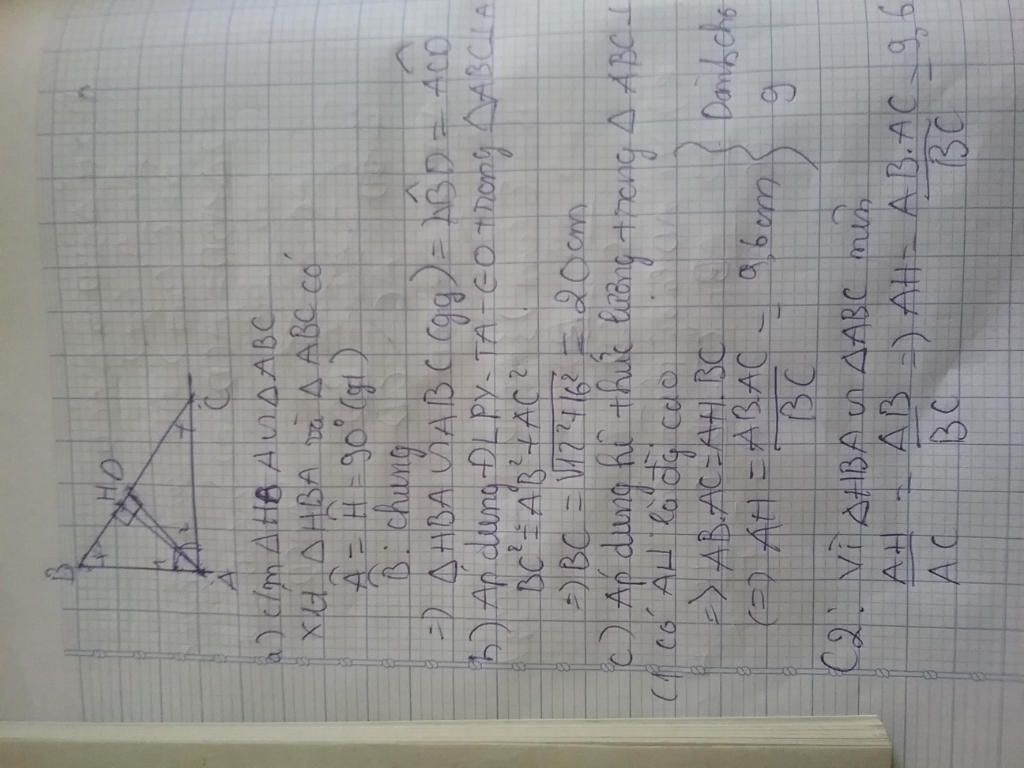 B
H D
A
C
a) c/m ΔHBA ∽ ΔABC
Xét ΔHBA và ΔABC có
Â = Ĥ = 90° (gt)
B̂: chung
=) ΔHBA ∽ ABC (gg) =) ÂBD = ÂCD
b) Áp dụng ĐL PY-TA-GO trong ΔABC ⊥ A
BC² = AB² + AC²
=) BC = √12²+16² = 20cm
c) Áp dụng hệ thức lượng trong Δ ABC ⊥
C1 có AH là đg cao
=) AB.AC = AH.BC
(=) AH = AB.AC / BC = 9,6cm } Dành cho 9
C2: Vì ΔHBA ∽ ΔABC mín
AH / AC = AB / BC =) AH = AB.AC / BC = 9,6